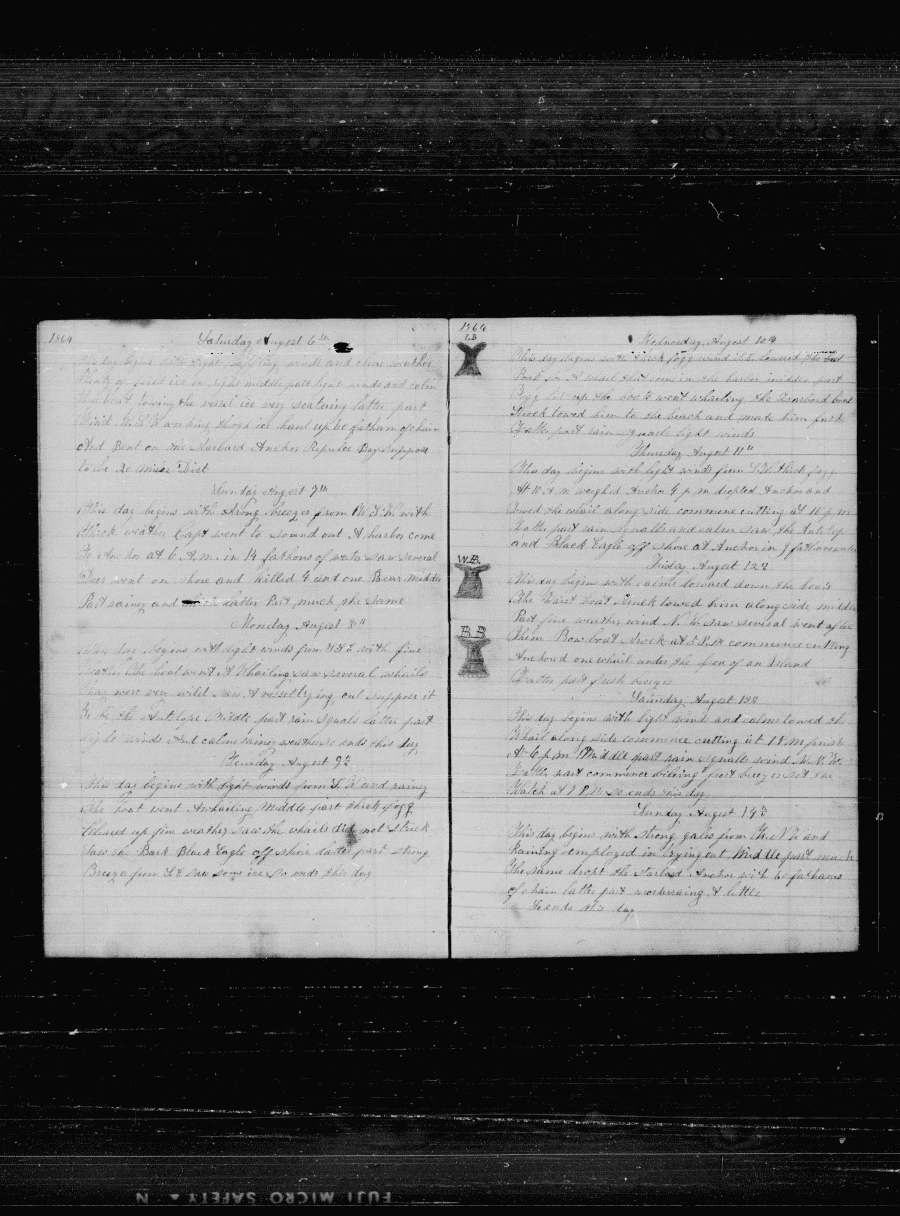 1864 Saturday August 6th
This day begins with light baffling winds and clear weather
Plenty of drift ice in sight middle part light winds and calm
the boat towing the vessel ice very scatering latter part
Wind working through ice hauld up 60 fathom of chain
and Bent on the Larbard Anchor Repulse Bay suppose
to be 20 miles Dist
Sunday August 7th
This day begins with strong breezes from with
thick weather Capt went to sound out A harbor come
to Anchor at 6 A.M. in 14 fathoms of water saw several
Deer went on shore and killed 4 and one Bear Middle
Part rainey and latter Part much the same
Monday August 8th
This day begins with light winds from with fine
weather the boat went A Whaling saw several whails
they were very wild saw A vessel trying out suppose it
to be the Antelope Middle part rain squals latter part
light winds and calms rainey weather so ends this day
Tuesday August 9th
This day begins with light winds from and rainey
the boat went Awhaling Middle part thick fogg
Cleared up fine weather saw the whails did not strick
Saw the Bark Black Eagle off shore latter part strong
Breeze from saw som ice So ends this day
1864 Wednesday, August 10th
L B
This day begins with thick fogg wind toward the
Boat for A whail that com in the harbor middle part
Fogg lit up the boats went whailing the Starbord boat
Struck towed him to the beach and made him fast
Latter part rain squals light winds
Thursday August 11th
This day begins with light winds from thick fogg
At 10 A.M weighed Anchor 4 p m droped Anchor and
towed the whail along side commence cutting at 10 p.m
Latter part rain squalls and calm saw the Antelop
and Black Eagle off shore at Anchor in 9 fathoms water
Friday August 12th
W.B.
This day begins with calms toward down the boats
the Waist boat struck towed him along side middle
Part fine weather wind N.W. saw several went after
B.B
them Bow boat struck at 5 P.M commence cutting
Anchored one whail under the free of an Island
Latter part fresh breezes
Saturday August 13th
This day begins with light wind and calms towed the
Whail along side commence cutting at 1 P.M finish
At 6 p m Middle part rain squalls wind N.N.W.
Latter part commence boiling fresh breezes set the
Watch at 8 P.M So ends this day
Sunday August 14th
This day begins with strong gales from the and
Raining employed in trying out Middle part much
the same dropt the Starbord Anchor with 60 fathoms
of chain latter part moderating A little
So ends this day
FUJI MICRO SAFETY ▲ N